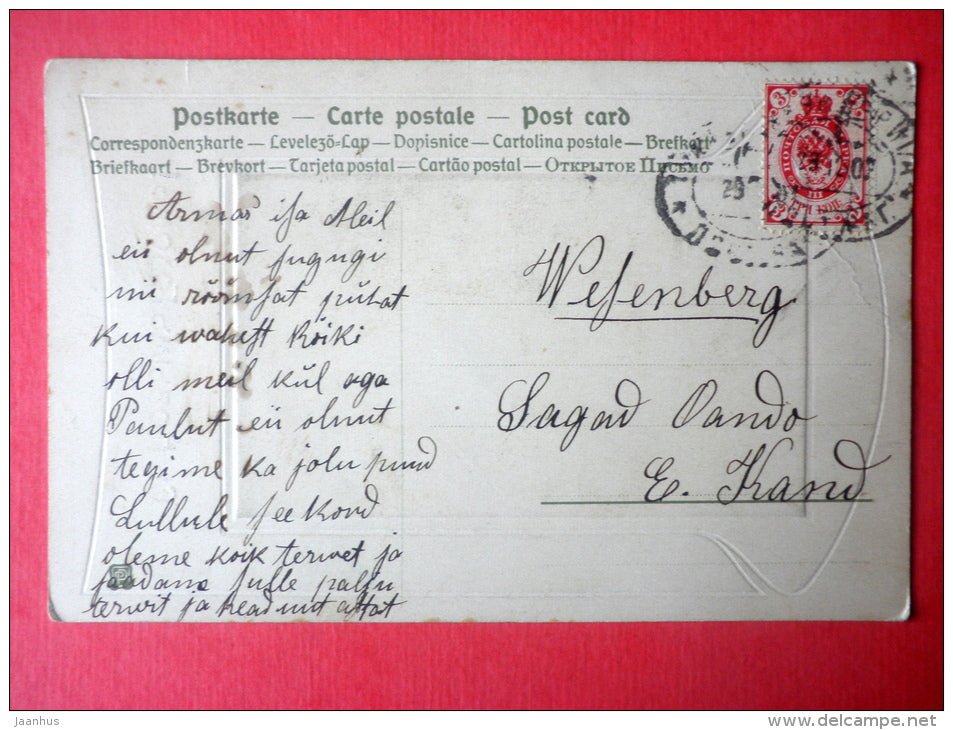 Postkarte — Carte postale — Post card
Correspondenzkarte — Levelező-Lap — Dopisnice — Cartolina postale — Brefkort
Briefkaart — Brevkort — Tarjeta postal — Cartão postal — Открытое Письмо
Armas isa Meil
eii olnut sugugi
nii rõõmsat pühat
kui wahest Kõiki
olli meil kül aga
Paulut eii olnut
tegime ka jolu puud
Lullule see kord
oleme koik terwet ja
saadame sulle palju
terwit ja head uut astat
Wesenberg
Sagad Oando
E. Kand
3 3
ТРИ КОП.
29
jaanhus
www.delcampe.net